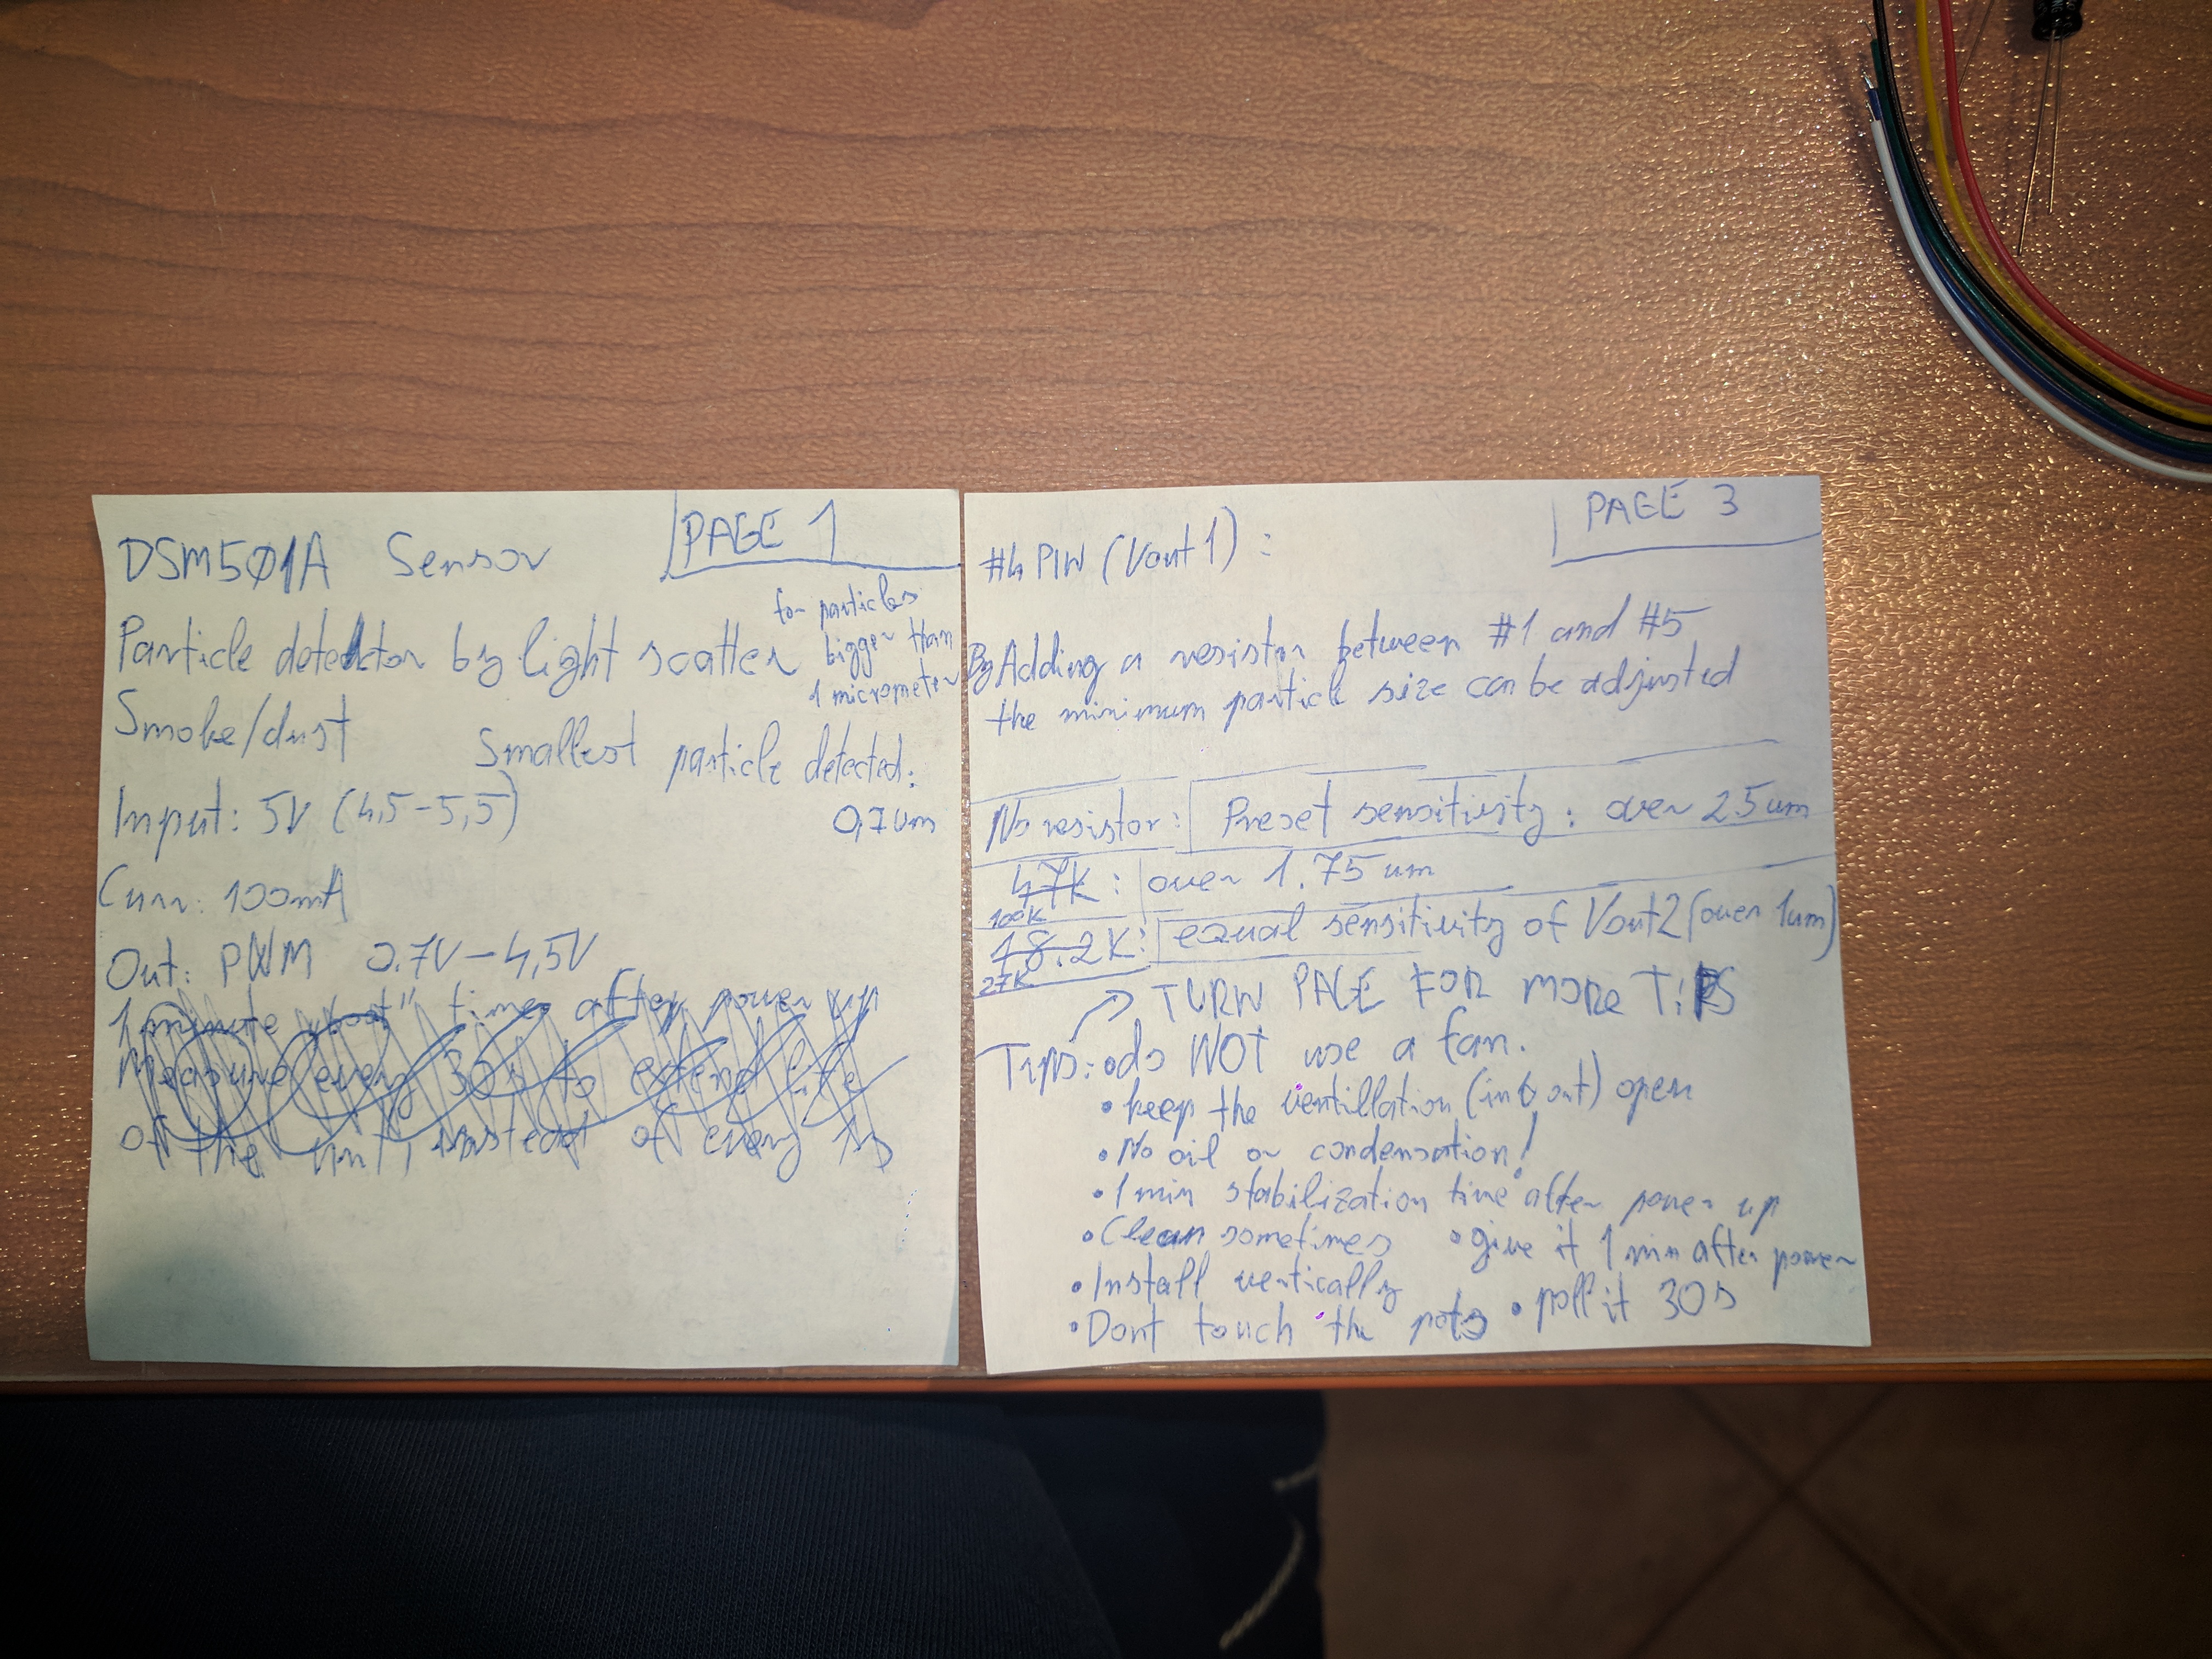 PAGE 1
DSM501A Sensor
Particle detektor by light scatter
for particles
bigger than
1 micrometer
Smoke/dust
Smallest particle detected:
0,7um
Input: 5V (4,5-5,5)
Curr: 100mA
Out: PWM 0.7V-4,5V
1 minute "boot" time after power up
Measure every 30s to extend life
of the unit, instead of every 1s
PAGE 3
#4 PIN (Vout 1):
By Adding a resistor between #1 and #5
the minimum particle size can be adjusted
No resistor: Preset sensitivity: over 2.5um
47K: over 1.75 um
100K
18.2K: equal sensitivity of Vout2 (over 1um)
27K
TURN PAGE FOR MORE TiPS
Tips: • do NOT use a fan.
• keep the ventillation (in & out) open
• No oil or condensation!
• 1 min stabilization time after power up
• Clean sometimes • give it 1 min after power
• Install vertically
• Dont touch the pots • poll it 30s